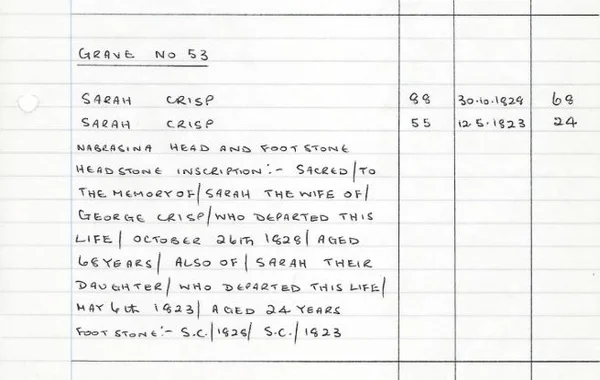 GRAVE NO 53
SARAH CRISP 88 30.10.1828 68
SARAH CRISP 55 12.5.1823 24
NABRASINA HEAD AND FOOTSTONE
HEADSTONE INSCRIPTION:- SACRED/TO
THE MEMORY OF/SARAH THE WIFE OF/
GEORGE CRISP/WHO DEPARTED THIS
LIFE/ OCTOBER 26TH 1828/ AGED
68 YEARS/ ALSO OF/ SARAH THEIR
DAUGHTER/ WHO DEPARTED THIS LIFE/
MAY 6th 1823/ AGED 24 YEARS
FOOTSTONE:- S.C/1828/ S.C./1823